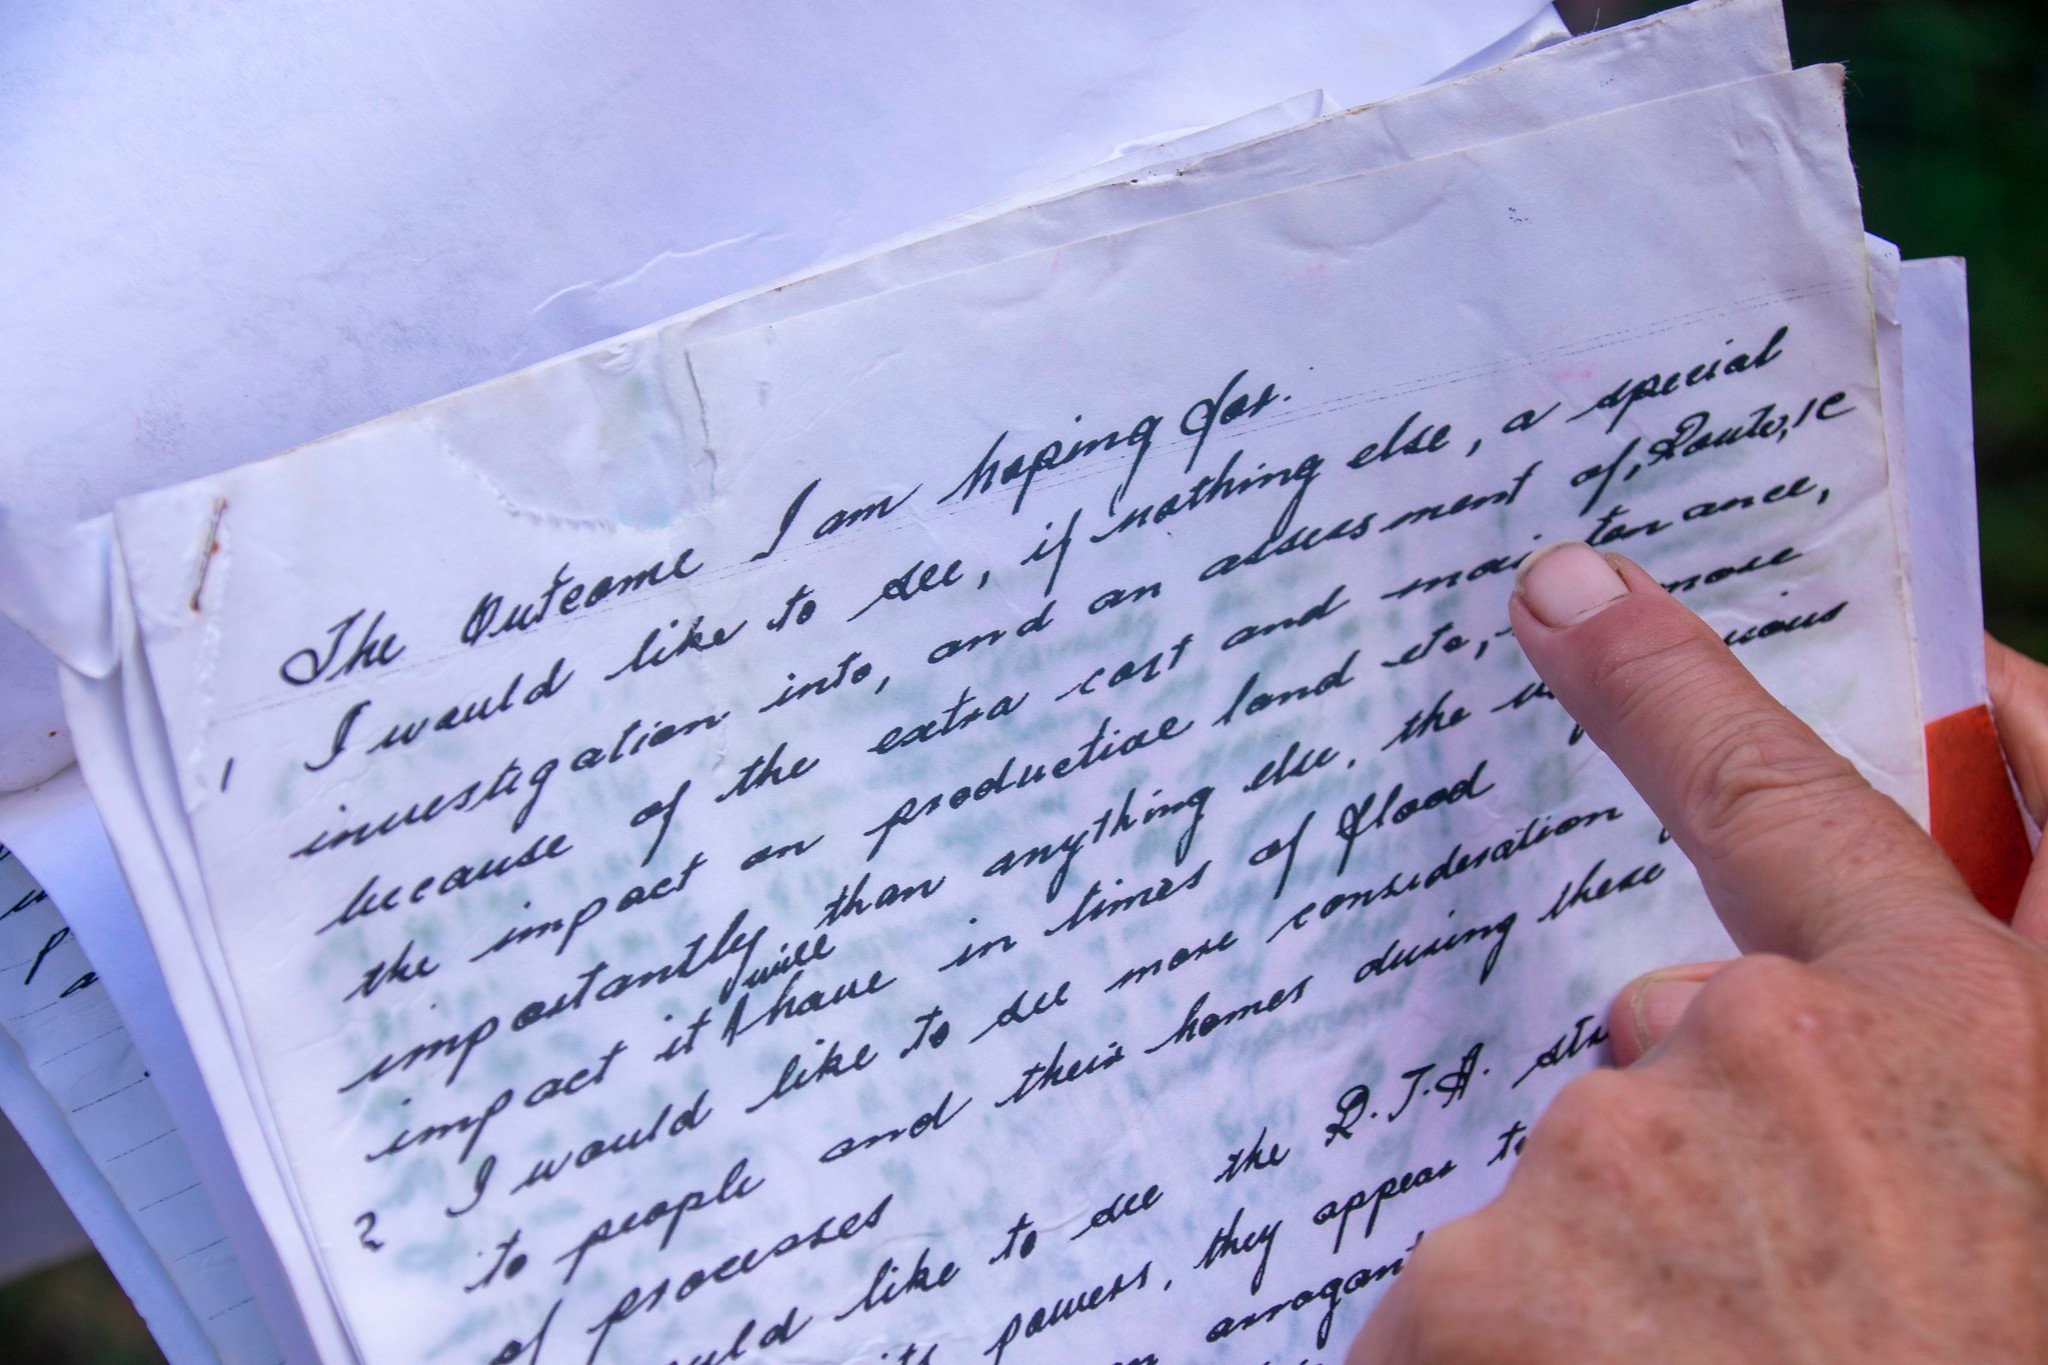 The Outcome I am hoping for.
1 I would like to see, if nothing else, a special
investigation into, and an assessment of, Route, 1C
because of the extra cost and maintenance,
the impact on productive land etc, more
importantly than anything else, the
impact it will have in times of flood
2 I would like to see more consideration
to people and their homes during these
of processes
would like to see the R.T.A.
powers, they appear to
arrogant